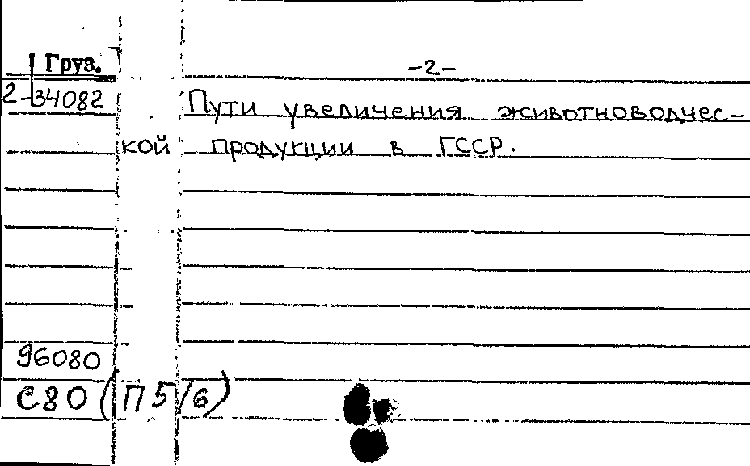 Груз.
-2-
2-34082
Пути увеличения животноводчес-
кой продукции в ГССР.
96080
С80 (П5/6)